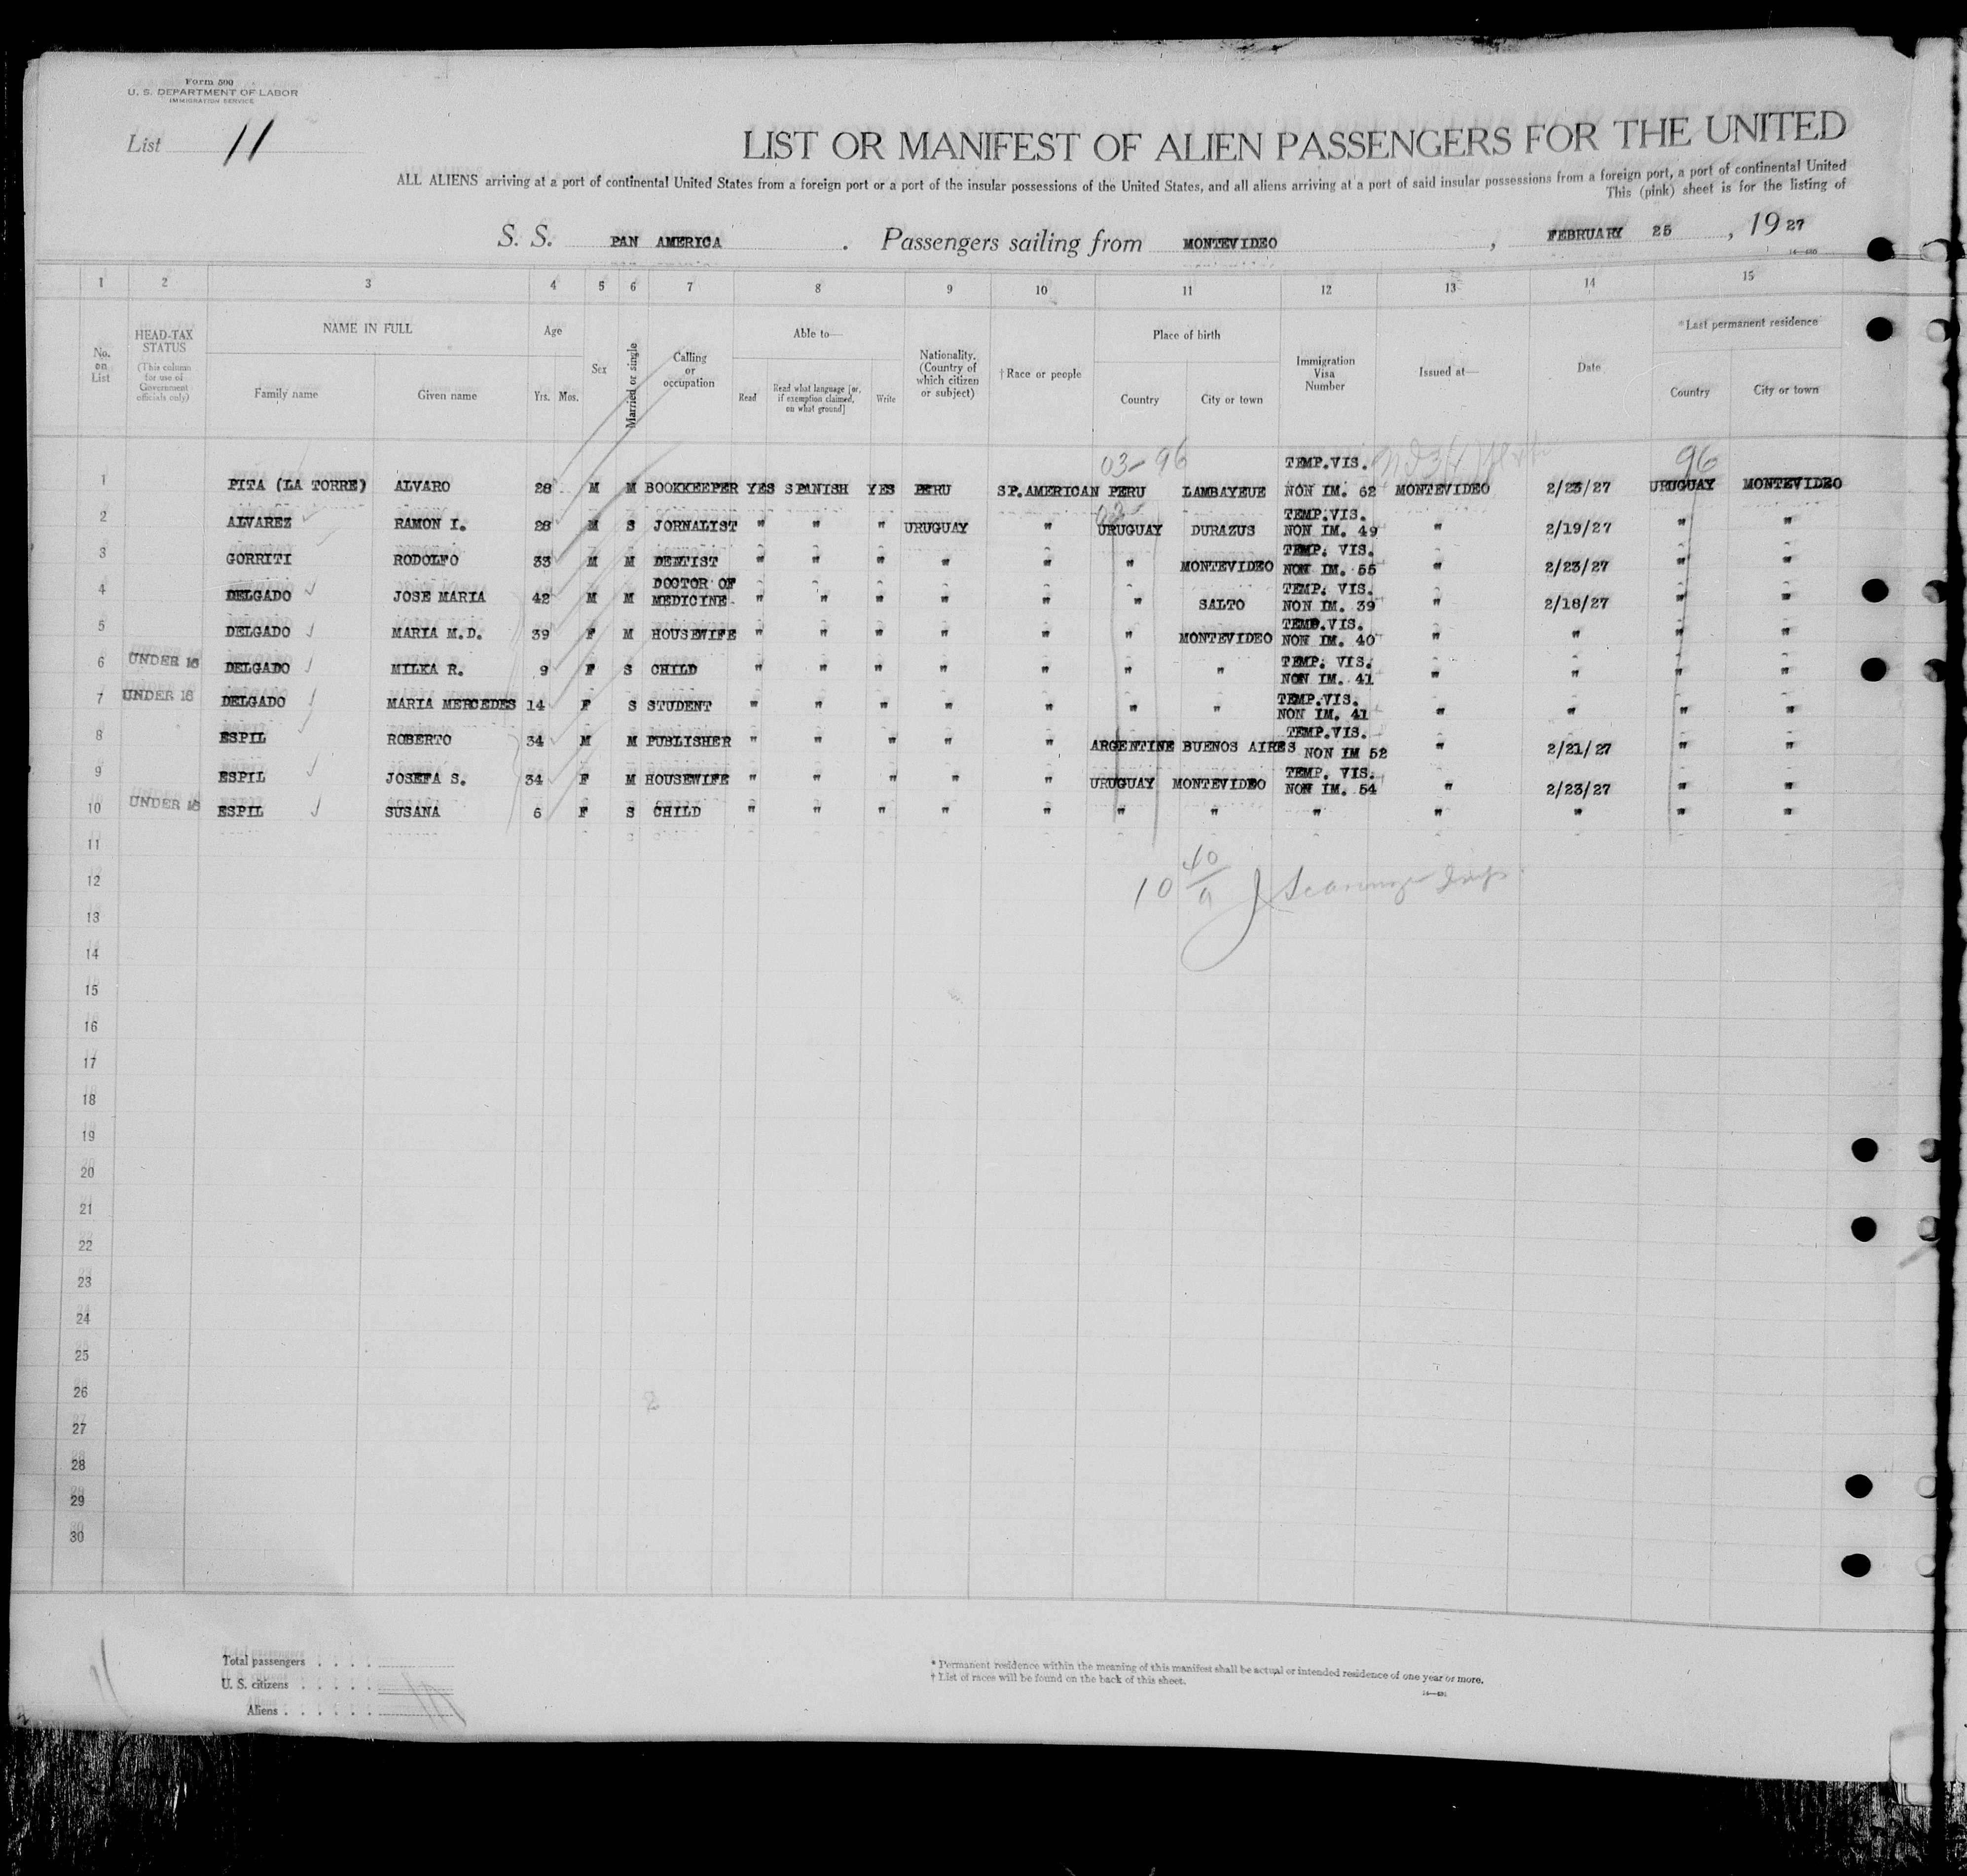 Form 500
U. S. DEPARTMENT OF LABOR
IMMIGRATION SERVICE
List 11
LIST OR MANIFEST OF ALIEN PASSENGERS FOR THE UNITED
ALL ALIENS arriving at a port of continental United States from a foreign port or a port of the insular possessions of the United States, and all aliens arriving at a port of said insular possessions from a foreign port, a port of continental United
This (pink) sheet is for the listing of
S. S. PAN AMERICA . Passengers sailing from MONTEVIDEO , FEBRUARY 25 , 19 27
1 2 3 4 5 6 7 8 9 10 11 12 13 14 15
No. on List
HEAD-TAX STATUS (This column for use of Government officials only)
NAME IN FULL Family name Given name
Age Yrs. Mos.
Sex
Married or single
Calling or occupation
Able to— Read Read what language [or, if exemption claimed, on what ground] Write
Nationality. (Country of which citizen or subject)
†Race or people
Place of birth Country City or town
Immigration Visa Number
Issued at—
Date
*Last permanent residence Country City or town
03-96 96
TEMP.VIS.
1 PITA (LA TORRE) ALVARO 28 M M BOOKKEEPER YES SPANISH YES PERU SP.AMERICAN PERU LAMBAYEUE NON IM. 62 MONTEVIDEO 2/23/27 URUGUAY MONTEVIDEO
TEMP.VIS.
2 ALVAREZ RAMON I. 28 M S JORNALIST " " " URUGUAY " URUGUAY DURAZUS NON IM. 49 " 2/19/27 " "
TEMP. VIS.
3 GORRITI RODOLFO 33 M M DENTIST " " " " " " MONTEVIDEO NON IM. 55 " 2/23/27 " "
DOCTOR OF TEMP. VIS.
4 DELGADO JOSE MARIA 42 M M MEDICINE " " " " " " SALTO NON IM. 39 " 2/18/27 " "
TEMP.VIS.
5 DELGADO MARIA M.D. 39 F M HOUSEWIFE " " " " " " MONTEVIDEO NON IM. 40 " " " "
TEMP. VIS.
6 UNDER 16 DELGADO MILKA R. 9 F S CHILD " " " " " " " NON IM. 41 " " " "
TEMP.VIS.
7 UNDER 16 DELGADO MARIA MERCEDES 14 F S STUDENT " " " " " " " NON IM. 41 " " " "
TEMP.VIS.
8 ESPIL ROBERTO 34 M M PUBLISHER " " " " " ARGENTINE BUENOS AIRES NON IM 52 " 2/21/27 " "
TEMP. VIS.
9 ESPIL JOSEFA S. 34 F M HOUSEWIFE " " " " " URUGUAY MONTEVIDEO NON IM. 54 " 2/23/27 " "
10 UNDER 16 ESPIL SUSANA 6 F S CHILD " " " " " " " " " " " "
11
12 10
13
14
15
16
17
18
19
20
21
22
23
24
25
26
27
28
29
30
Total passengers . . . .
U. S. citizens . . . . .
Aliens . . . . . .
* Permanent residence within the meaning of this manifest shall be actual or intended residence of one year or more.
† List of races will be found on the back of this sheet.